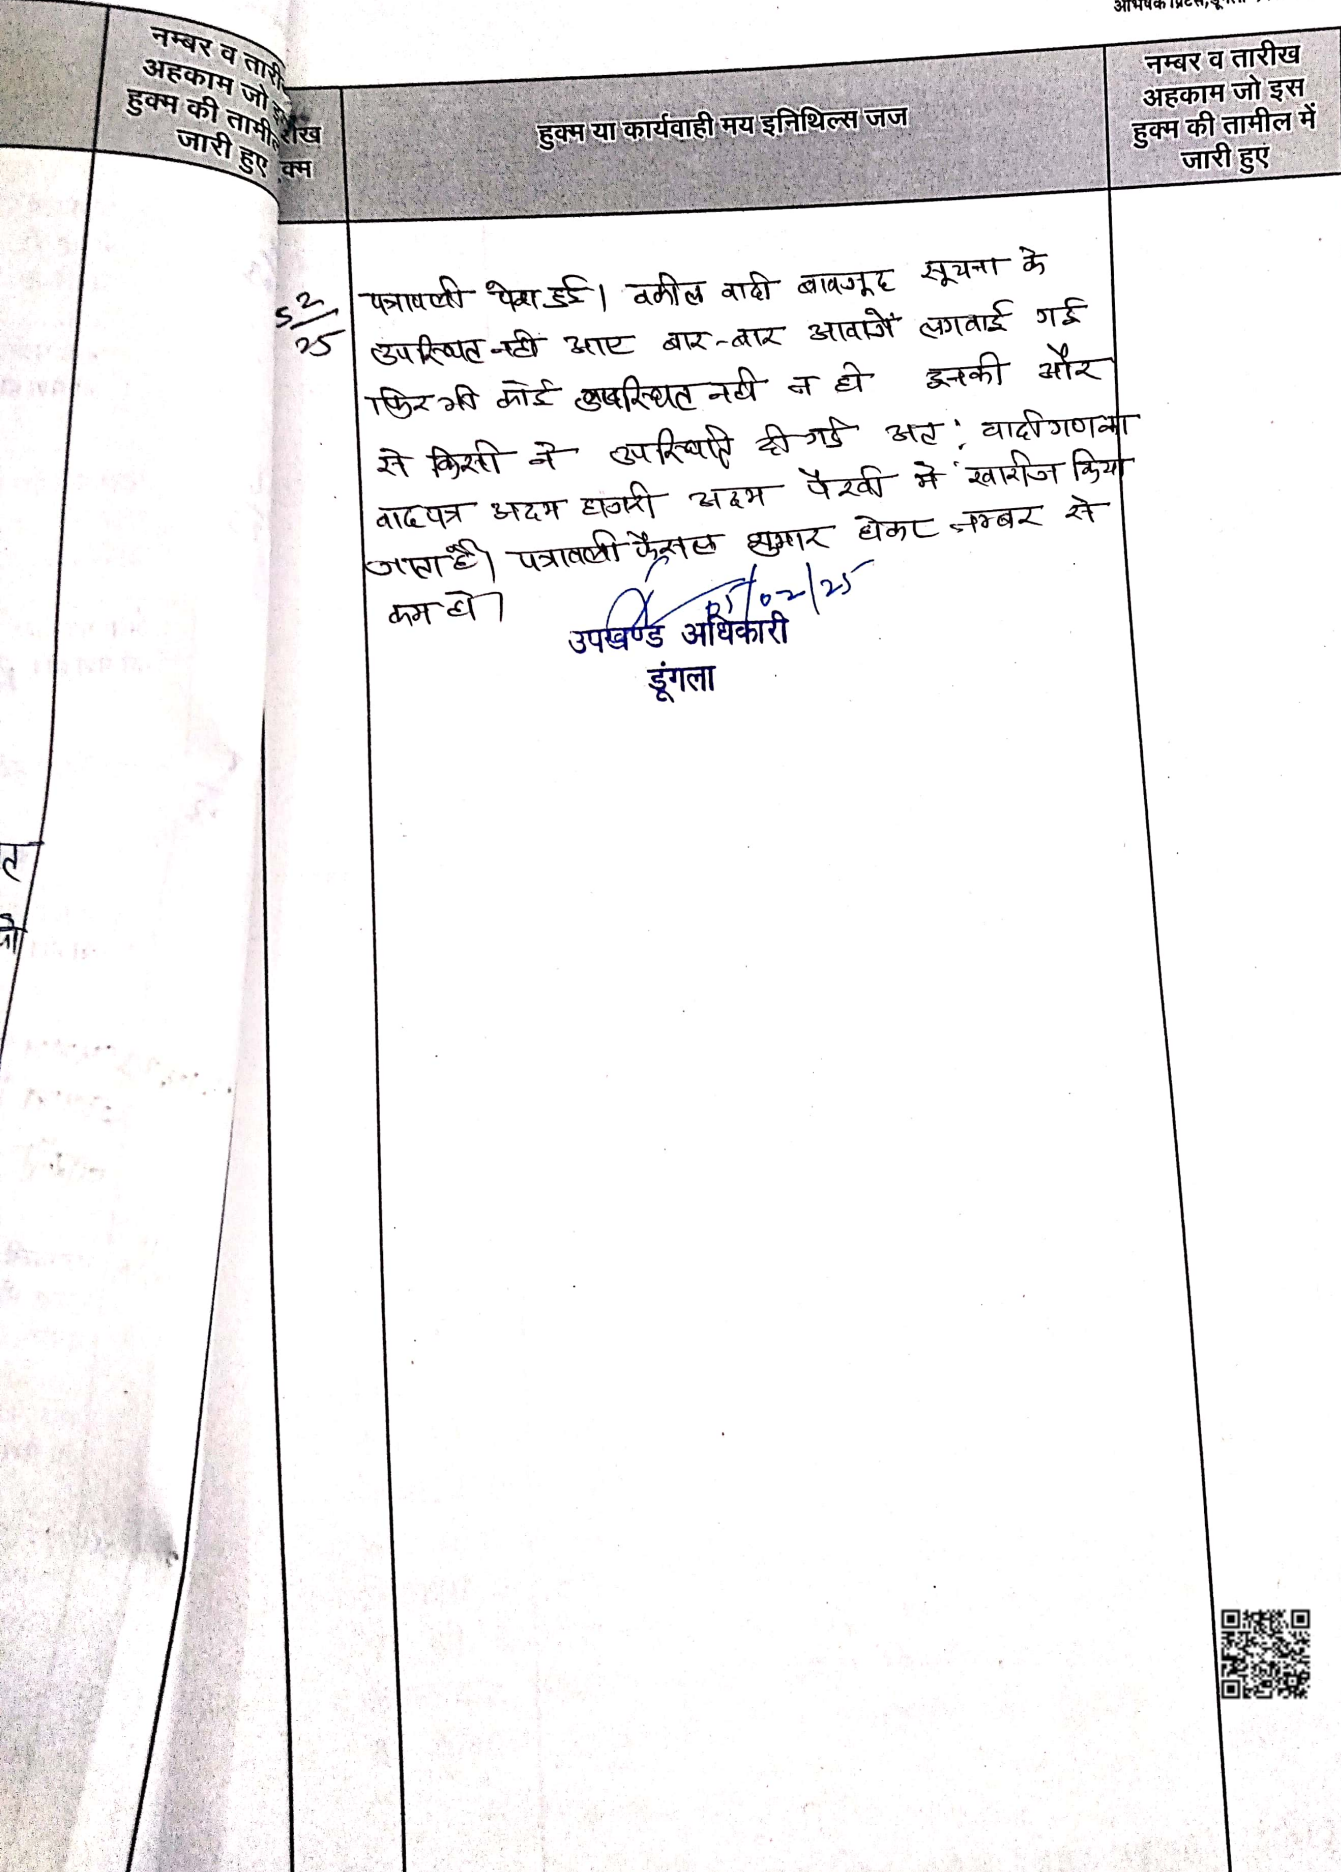 नम्बर व तारी
अहकाम जो इस
हुक्म की तामील
जारी हुए
रीख
क्म
हुक्म या कार्यवाही मय इनिथिल्स जज
नम्बर व तारीख
अहकाम जो इस
हुक्म की तामील में
जारी हुए
5 2/25
पत्रावली पेश हुई। वकील वादी बावजूद सूचना के
उपस्थित नही आए बार-बार आवाजें लगवाई गई
फिर भी कोई उपस्थित नही न ही इनकी और
से किसी ने उपस्थिति दी गई अत: वादीगण का
वादपत्र अदम हाजरी अदम पैरवी में खारीज किया
जाता है। पत्रावली फैसल शुमार होकर नम्बर से
कम हो।
05/02/25
उपखण्ड अधिकारी
डूंगला